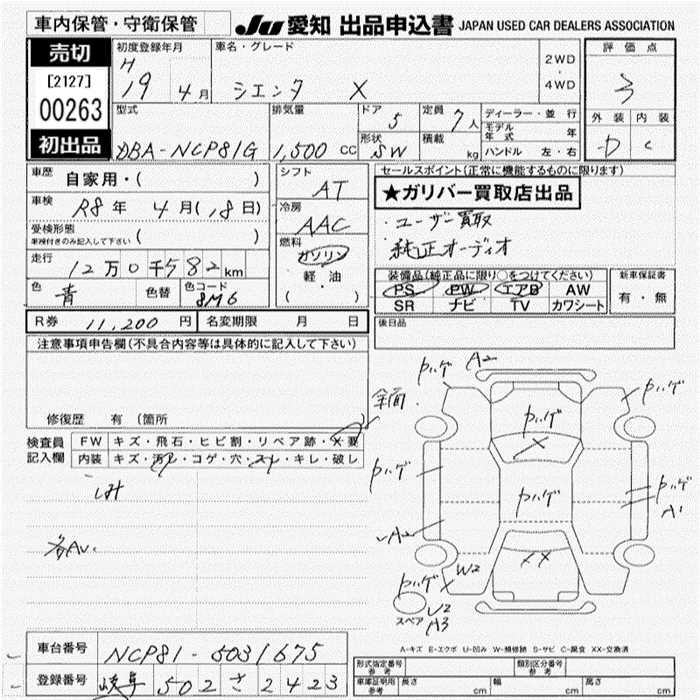 車内保管・守衛保管
JU 愛知 出品申込書 JAPAN USED CAR DEALERS ASSOCIATION
売切
[2127]
00263
初出品
初度登録年月
H
19 4 月
車名・グレード
シエンタ X
2WD
・
4WD
評価点
3
外装 内装
D C
型式
DBA-NCP81G
排気量
1,500 CC
ドア 5
定員 7 人
形状 SW
積載 kg
ディーラー・並行
モデル年式 年
ハンドル 左・右
車歴
自家用・( )
車検
R8 年 4 月 (18 日)
受検形態
車検付きのみ記入して下さい ( )
走行
12 万 0 千 582 km
色
青
色替
色コード
8M6
シフト
AT
冷房
AAC
燃料
ガソリン
軽油
・
( )
セールスポイント(正常に機能するものに限ります)
★ガリバー買取店出品
・ユーザー買取
純正オーディオ
装備品(純正品に限り○をつけてください)
PS PW エアB AW
SR ナビ TV カワシート
新車保証書
有・無
R券 11,200 円
名変期限 月 日
後日品
注意事項申告欄(不具合内容等は具体的に記入して下さい)
修復歴 有 (箇所
検査員
記入欄
FW キズ・飛石・ヒビ割・リペア跡・X要
内装 キズ・汚れ・コゲ・穴・スレ・キレ・破レ
シミ
各AU.
全面
Pハゲ A2
Pハゲ
Pハゲ
Pハゲ
Pハゲ
Pハゲ
A1
A2
XX
Pハゲ
W2
スペア
U2
A3
A-キズ E-エクボ U-凹み W-補修跡 S-サビ C-腐食 XX-交換済
車台番号 NCP81-5031675
登録番号 岐阜 502 さ 2423
形式指定番号
参考
類別区分番号
参考
車庫証明用
参考
長さ cm
幅 cm
高さ cm